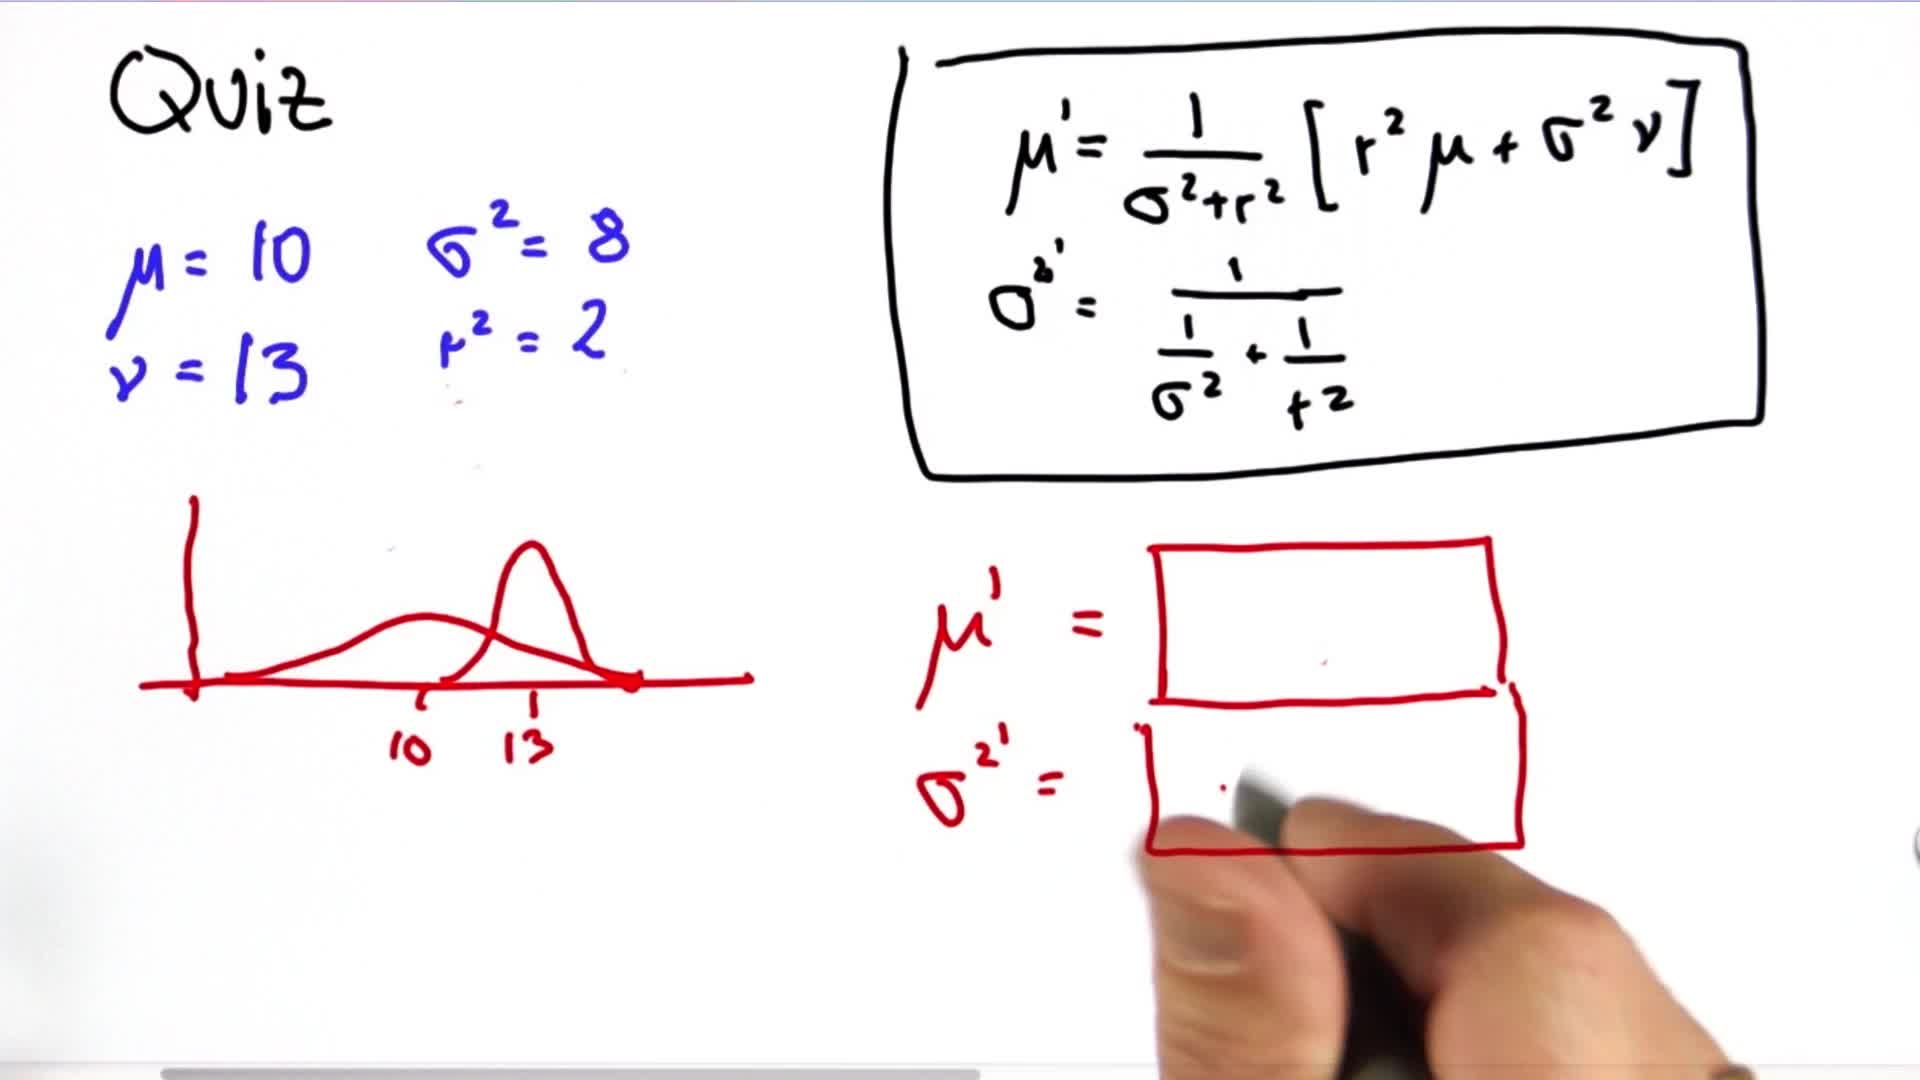 Quiz
μ = 10 σ² = 8
ν = 13 r² = 2
μ' = 1/(σ²+r²) [r² μ + σ² ν]
σ²' = 1/(1/σ² + 1/r²)
10 13
μ' =
σ²' =